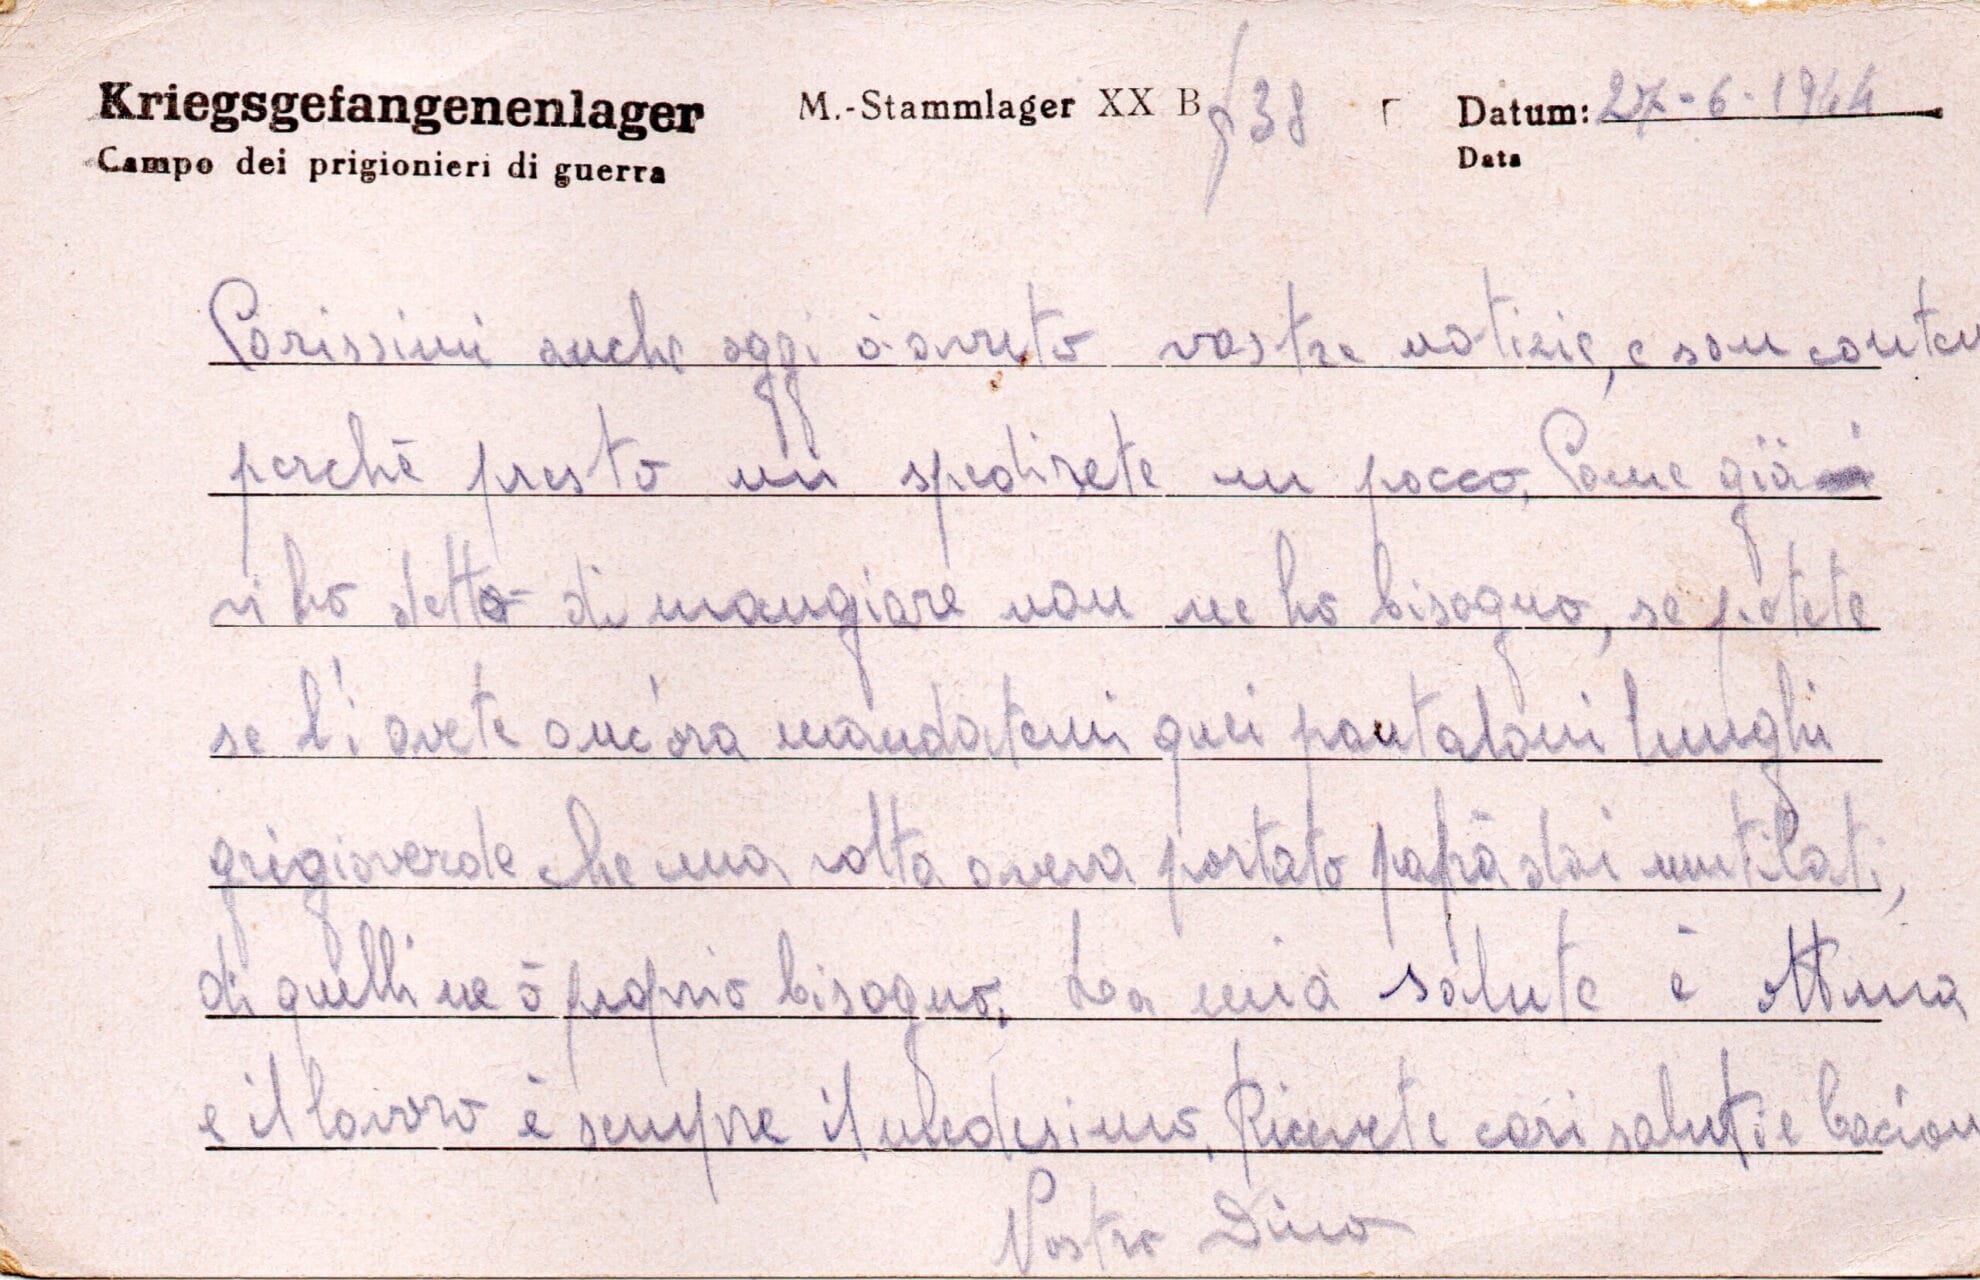 Kriegsgefangenenlager M.-Stammlager XX B 38 Datum: 27-6-1944
Campo dei prigionieri di guerra Data
Carissimi anche oggi ò avuto vostre notizie, e son conten
perchè presto mi spedirete un pacco, Come già
vi ho detto di mangiare non ne ho bisogno, se potete
se l'i avete anc'ora mandatemi quei pantaloni lunghi
grigioverde che una volta aveva portato papà dai mutilati,
di quelli ne ò proprio bisogno. La mia salute è ottima
e il lavoro è sempre il medesimo, Ricevete cari saluti e bacion
Vostro Dino